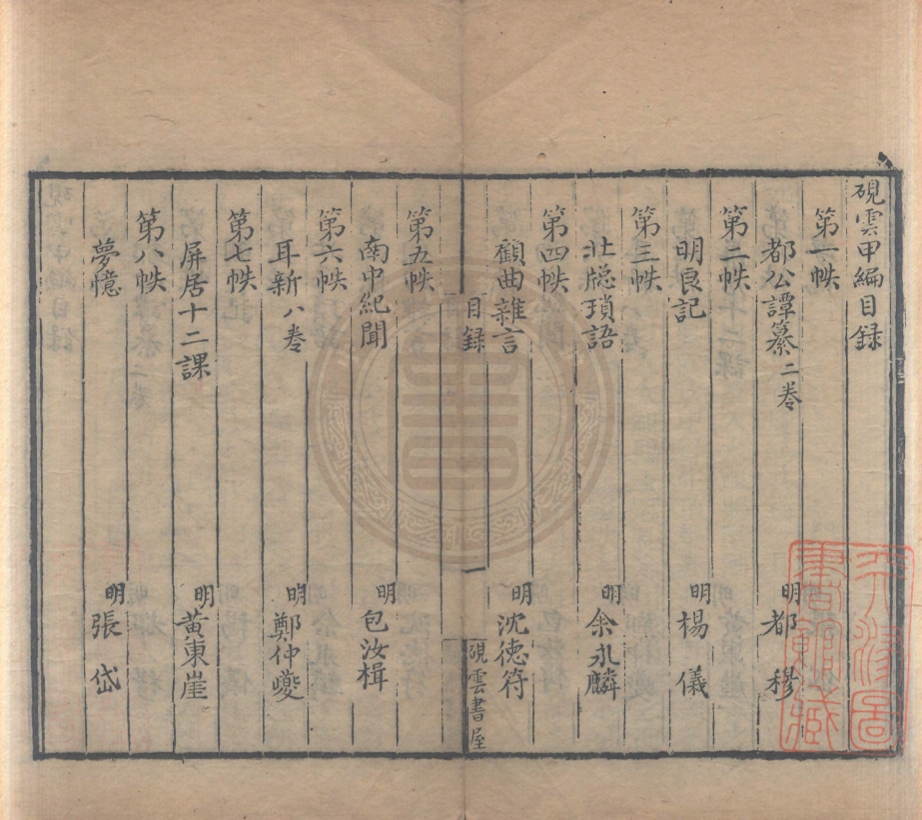 硯雲甲編目録
第一帙
都公譚纂二卷 明都穆
第二帙
明良記 明楊儀
第三帙
壯牎瑣語 明余永麟
第四帙
顧曲雜言 明沈德符
目録 一 硯雲書屋
第五帙
南中紀聞 明包汝楫
第六帙
耳新八卷 明鄭仲夔
第七帙
屏居十二課 明黄東崖
第八帙
夢憶 明張岱